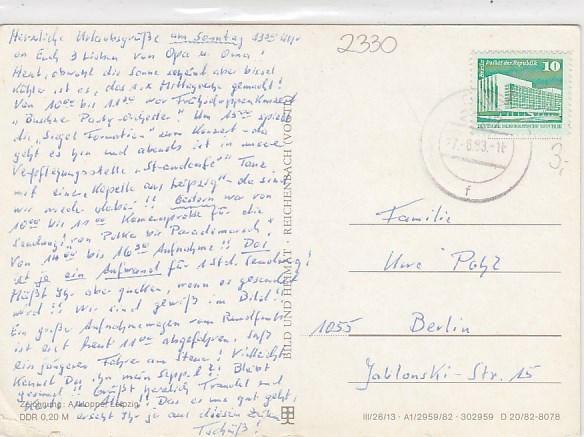 Herzliche Urlaubsgrüße am Sonntag 13³⁰ Uhr
an Euch 3 Lieben von Opa u. Oma!
Heut, obwohl die Sonne scheint aber bissel
kühler ist es, das 1.x Mittagruhe gemacht!
Von 10⁰⁰ bis 11³⁰ war Frühschoppenkonzert
Party-Orchester" Um 15⁰⁰ spielt
die „Siegel Formation" zum Konzert - da
geht es hin und abends ist in unserer
Verpflegungsstelle „Strandcafe" Tanz
mit einer Kapelle aus Leipzig - da sind
wir auch dabei!! Gestern war von
10⁰⁰ bis 11⁰⁰ Kameraprobe für die
Sendung! von Polka bis Parademarsch"
Von 14⁰⁰ bis 16³⁰ Aufnahme!! Das
ist ja ein Aufwand für 1 Std. Sendung!
Müßt Ihr aber gucken, wenn es gesendet
wird!! Wir sind gewiß im Bild!!
Ein großer Aufnahmewagen vom Rundfunk
ist erst heut 11⁰⁰ abgefahren. Saß
ein jüngerer Fahrer am Steuer! Vielleicht
kennst Du ihn mein Sepp.l 2! Bleibt
gesund!! Grüßt herzlich Traudel und
Alle!! Das es uns gut geht,
erseht Ihr ja aus diesen Zeilen
Tschüß!
Zeichnung: A. Hoppe, Leipzig
DDR 0,20 M
BILD UND HEIMAT · REICHENBACH (VOGTL)
2330
Berlin Palast der Republik 10
DEUTSCHE DEMOKRATISCHE REPUBLIK
27.-6.83.-18
f
3,-
Familie
Uwe Patz
1055 Berlin
Jablonski-Str. 15
III/26/13 · A1/2959/82 · 302959 D 20/82-8078